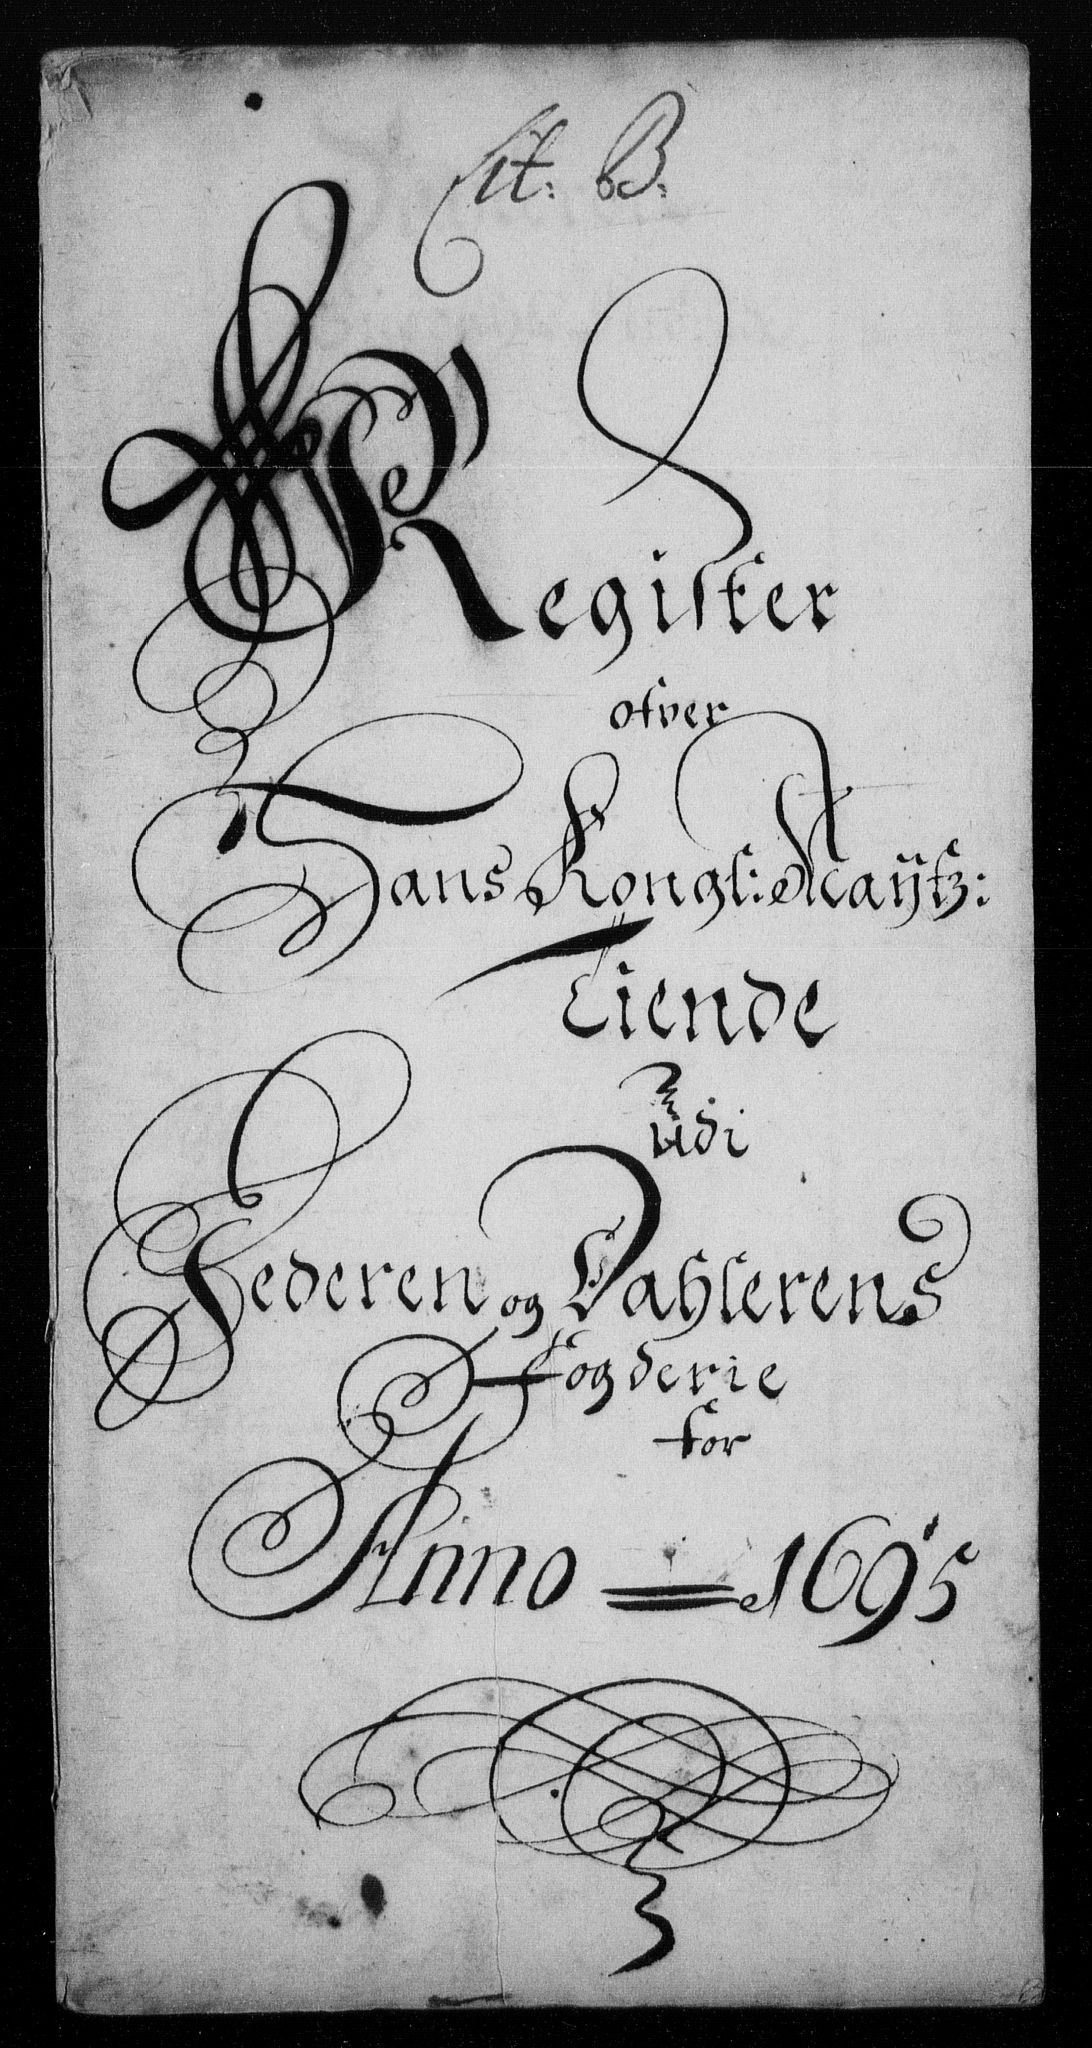 Lit. B.
Register
ofver
Hans Kongl: Maytz:
Tiende
udi
Jederen og Dahlerens
fogderie
for
Anno = 1695